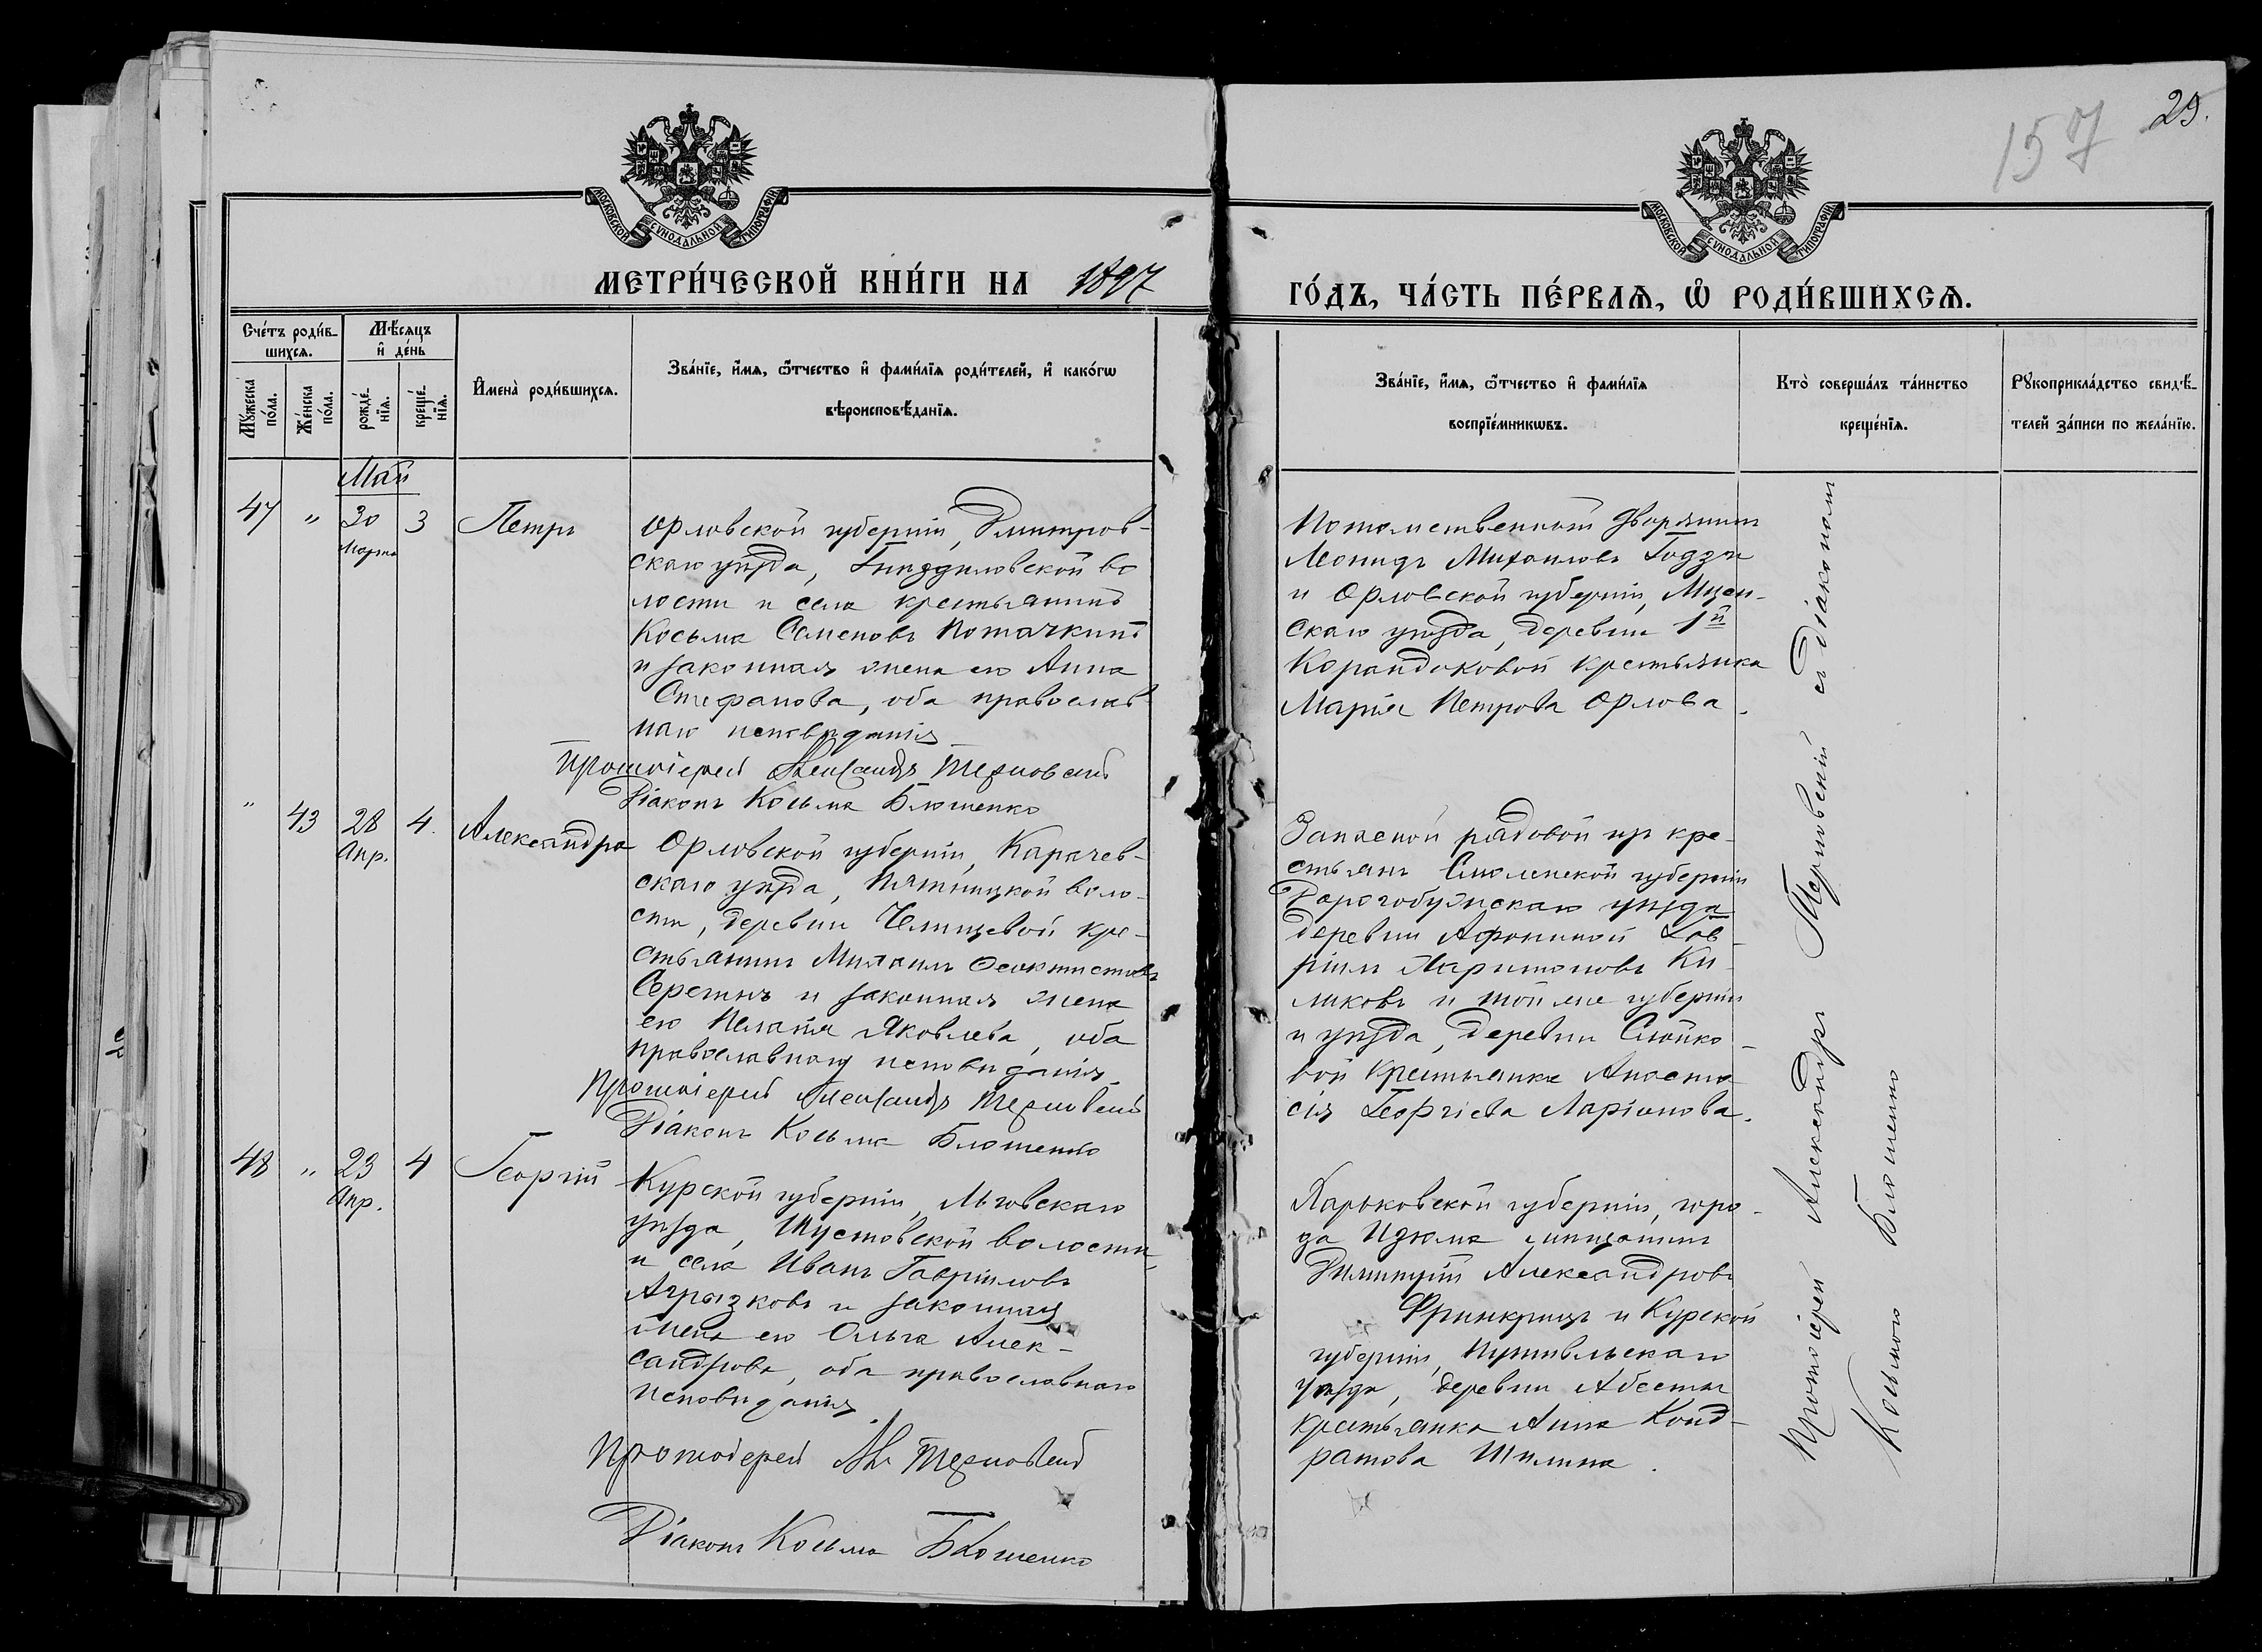 29.
157
МОСКОВСКОЙ СѴНОДАЛЬНОЙ ТИПОГРАФІИ
МОСКОВСКОЙ СѴНОДАЛЬНОЙ ТИПОГРАФІИ
МЕТРИ́ЧЕСКОЙ КНИ́ГИ НА 1897
ГО́ДЪ, ЧА́СТЬ ПЕ́РВАѦ, Ѽ РОДИ́ВШИХСѦ.
Сче́тъ роди́в-
шихсѧ.
Мѣ́сѧцъ
и҆ де́нь
Мꙋ́жеска
по́ла.
Же́нска
по́ла.
рожде́-
нїѧ.
креще́-
нїѧ.
И҆мена̀ роди́вшихсѧ.
Зва́нїе, и҆́мѧ, ѻ҆́тчество и҆ фами́лїѧ роди́телей, и҆ како́гѡ
вѣроисповѣ́данїѧ.
Зва́нїе, и҆́мѧ, ѻ҆́тчество и҆ фами́лїѧ
воспрїе́мникѡвъ.
Кто̀ соверша́лъ та́инство
креще́нїѧ.
Рꙋкоприкла́дство свидѣ́-
телей за́писи по жела́нїю.
Май
47 " 30 3 Петръ
Марта
Орловской губерніи, Дмитров-
скаго уѣзда, Гнѣздиловской во
лости и села крестьянинъ
Косьма Семеновъ Поточкинъ
и законная жена его Анна
Стефанова, оба православ
наго исповѣданія
Протоіерей Александръ Терновскій
Діаконъ Косьма Блошенко
Потомственный дворянинъ
Леонидъ Михаиловъ
и Орловской губерніи, Мцен-
скаго уѣзда, деревни 1й
Карандаковой крестьянка
Марія Петрова Орлова.
" 43 28 4. Александра
Апр.
Орловской губерніи, Карачев-
скаго уѣзда, Пятницкой воло-
сти, деревни Челищевой кре-
стьянинъ Михаилъ Ѳеоктистовъ
и законная жена
его Пелагія Яковлева, оба
православнаго исповѣданія
Протоіерей Александръ Терновскій
Діаконъ Косьма Блошенко
Запасной рядовой изъ кре-
стьянъ Смоленской губерніи
Дорогобужскаго уѣзда
деревни Афониной Гав-
ріилъ Харитоновъ Ку-
ликовъ и той же губерніи
и уѣзда, деревни Слойко-
вой крестьянка Анаста
сія Георгіева Ларіонова.
48 " 23 4 Георгій
Апр.
Курской губерніи, Льговскаго
уѣзда, Шустовской волости
и села Иванъ Гавріиловъ
Агрызковъ и законная
жена его Ольга Алек-
сандрова, оба православнаго
исповѣданія.
Протоіерей Ал. Терновскій
Діаконъ Косьма Блошенко
Харьковской губерніи, горо-
да Изюма мѣщанинъ
Димитрій Александровъ
и Курской
губерніи, Путивльскаго
уѣзда, деревни
крестьянка Анна Конд-
ратова Шилина.
Протоіерей Александръ Терновскій съ Діакономъ
Косьмою Блошенко